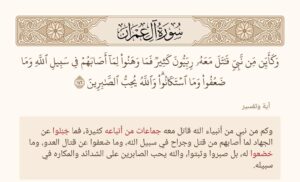 سُورَةُ آلِ عِمْرَان
وَكَأَيِّن مِّن نَّبِيٍّ قَٰتَلَ مَعَهُۥ رِبِّيُّونَ كَثِيرٌ فَمَا وَهَنُوا۟ لِمَآ أَصَابَهُمْ فِي سَبِيلِ ٱللَّهِ وَمَا
ضَعُفُوا۟ وَمَا ٱسْتَكَانُوا۟ۗ وَٱللَّهُ يُحِبُّ ٱلصَّٰبِرِينَ ١٤٦
آية وتفسير
وكم من نبي من أنبياء الله قاتل معه جماعات من أتباعه كثيرة، فما جَبَنُوا عن
الجهاد لما أصابهم من قتل وجراح في سبيل الله، وما ضعفوا عن قتال العدو، وما
خضعوا له، بل صبروا وثبتوا، والله يحب الصابرين على الشدائد والمكاره في
سبيله.